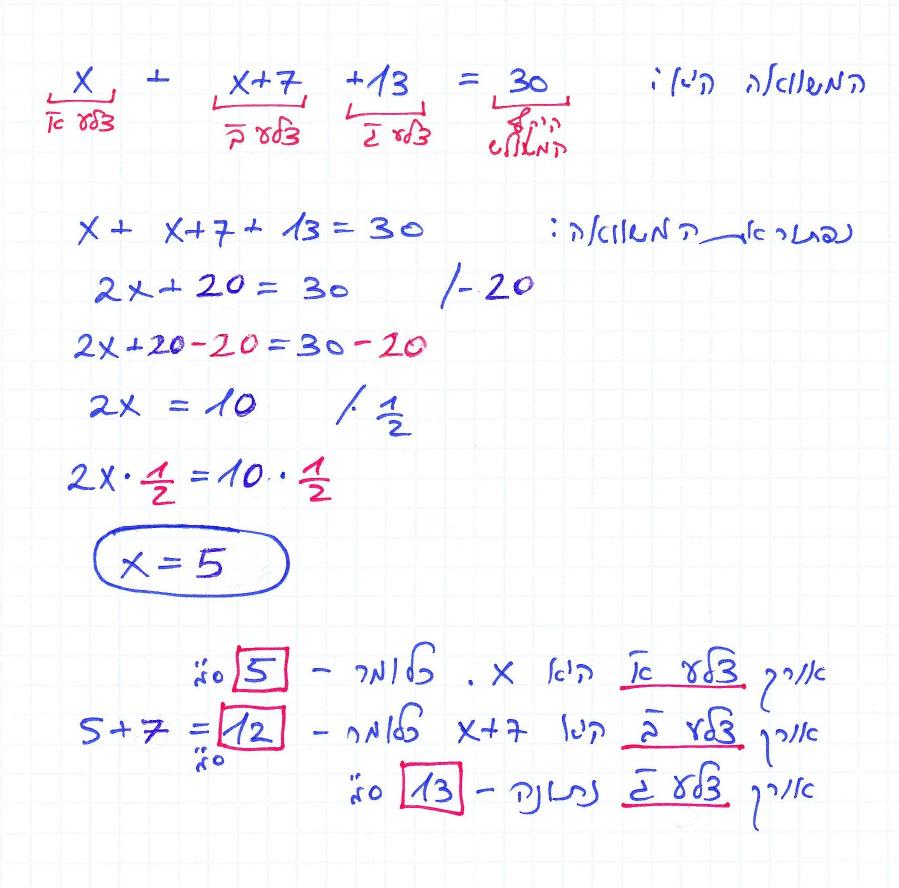 המשוואה היא: x + x+7 +13 = 30
צלע א צלע ב צלע ג היקף
המשולש
נפתור את המשוואה: x + x+7 + 13 = 30
2x + 20 = 30 /-20
2x+20-20=30-20
2x = 10 /· 1/2
2x · 1/2 = 10 · 1/2
x = 5
אורך צלע א היא x. כלומר - 5 ס"מ
אורך צלע ב היא x+7 כלומר - 5+7 = 12
ס"מ
אורך צלע ג נתונה - 13 ס"מ